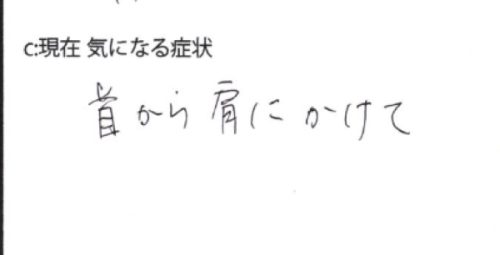 c:現在 気になる症状
首から肩にかけて